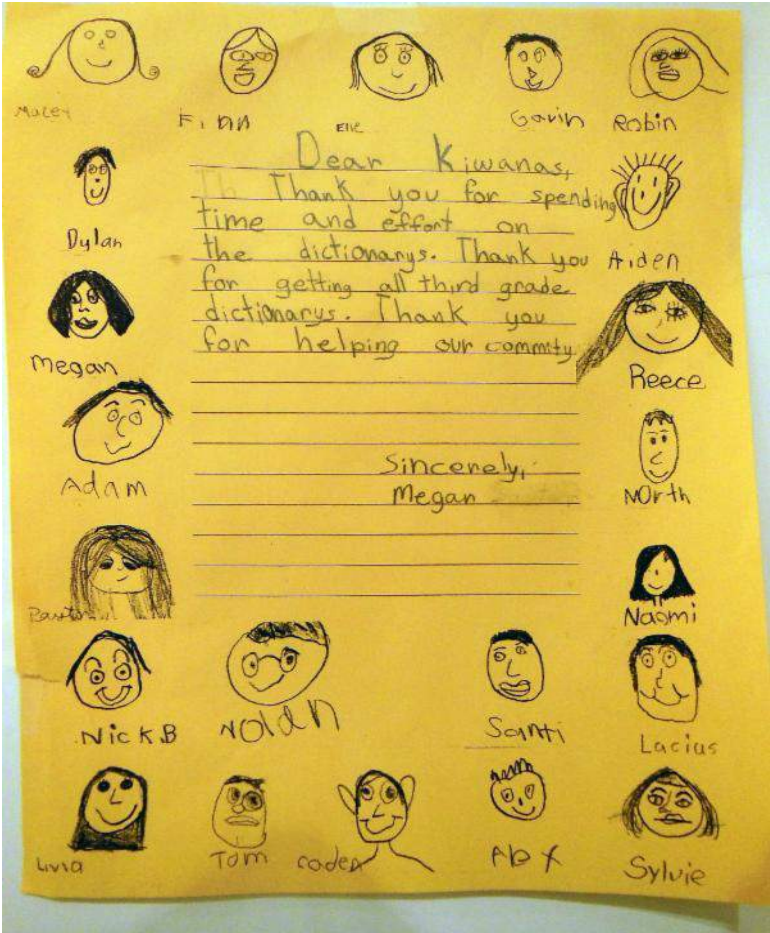 Macey
Finn
Elle
Gavin
Robin
Dear Kiwanas,
Th Thank you for spending
time and effort on
the dictionarys. Thank you
for getting all third grade
dictionarys. Thank you
for helping our commity
Sincerely,
Megan
Dylan
Aiden
Megan
Reece
Adam
North
Naomi
Nick B
Nolan
Santi
Lacius
Livia
Tom
Caden
Alex
Sylvie